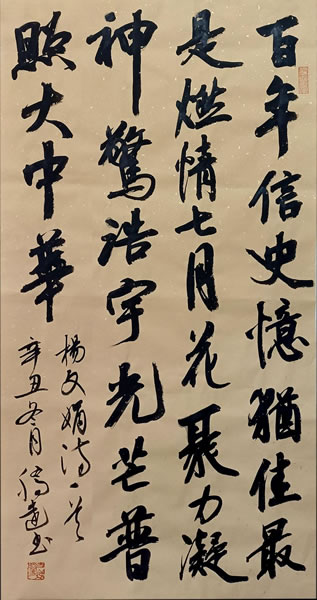 百年信史憶猶佳最
是燃情七月花聚力凝
神驚浩宇光芒普
照大中華
楊文娟诗一首
辛丑冬月书